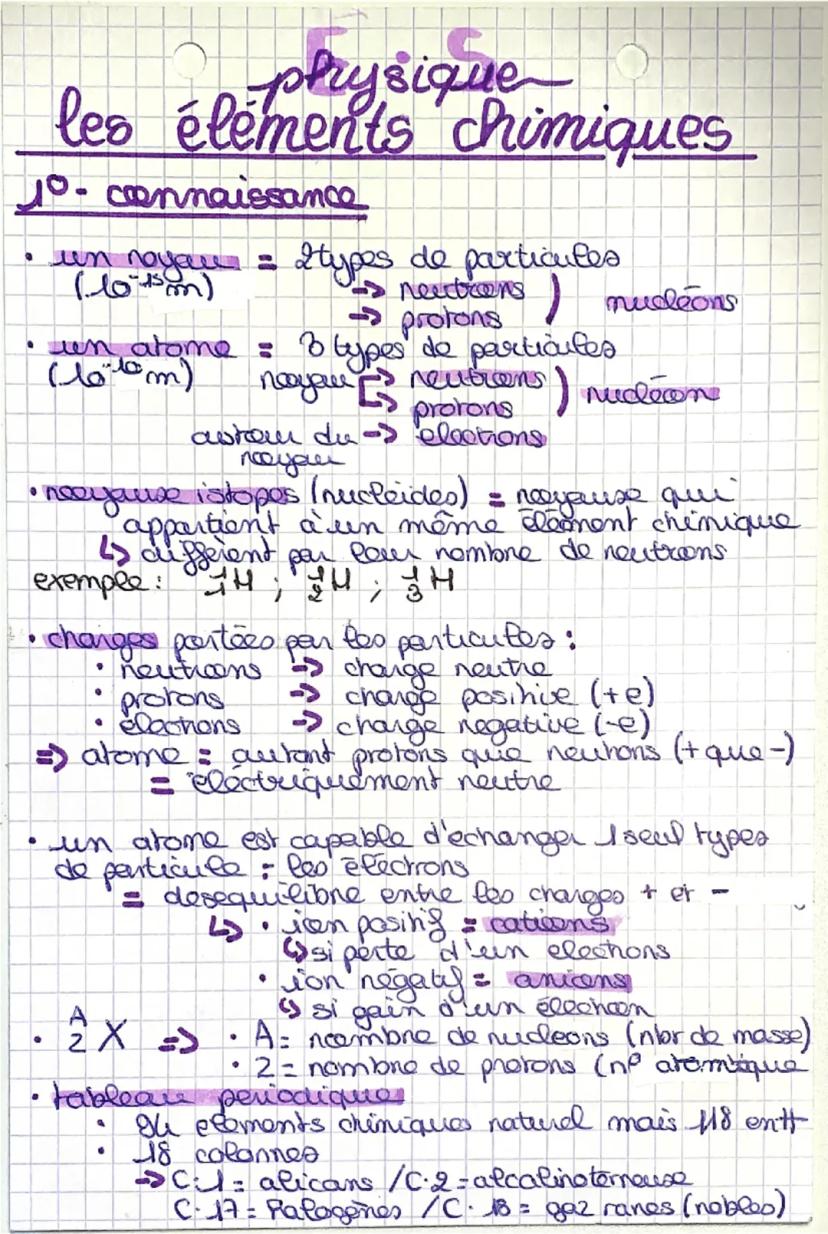 E.S
physique
les éléments chimiques
1°- connaissance
• un noyau = 2 types de particules
(10⁻¹⁵m) → neutrons ) nucléons
→ protons
• un atome = 3 types de particules
(10⁻¹⁰m) noyau → neutrons ) nucléon
→ protons
autour du → electrons
noyau
• noyause istopes (nucléides) = noyause qui
appartient à un même élément chimique
↳ diffèrent par leur nombre de neutrons
exemple : ¹₁H ; ¹₂H ; ¹₃H
• charges portées par les particules :
• neutrons → charge neutre
• protons → charge positive (+e)
• électrons → charge negative (-e)
⇒ atome = autant protons que neutrons (+ que -)
= électriquement neutre
• un atome est capable d'echanger 1 seul types
de particule = les électrons
= desequilibre entre les charges + et -
↳ • ion positif = cations
↳ si perte d'un electrons
• ion négatif = anions
↳ si gain d'un électron
• ᴬ₂X ⇒ • A = nombre de nucleons (nbr de masse)
• 2 = nombre de protons (n° atomique
• tableau periodique
• 94 elements chimiques naturel mais 118 en tt
• 18 colonnes
→ C.1 = alicans / C.2 = alcalinoterreuse
C.17 = Halogènes / C.18 = gaz rares (nobles)